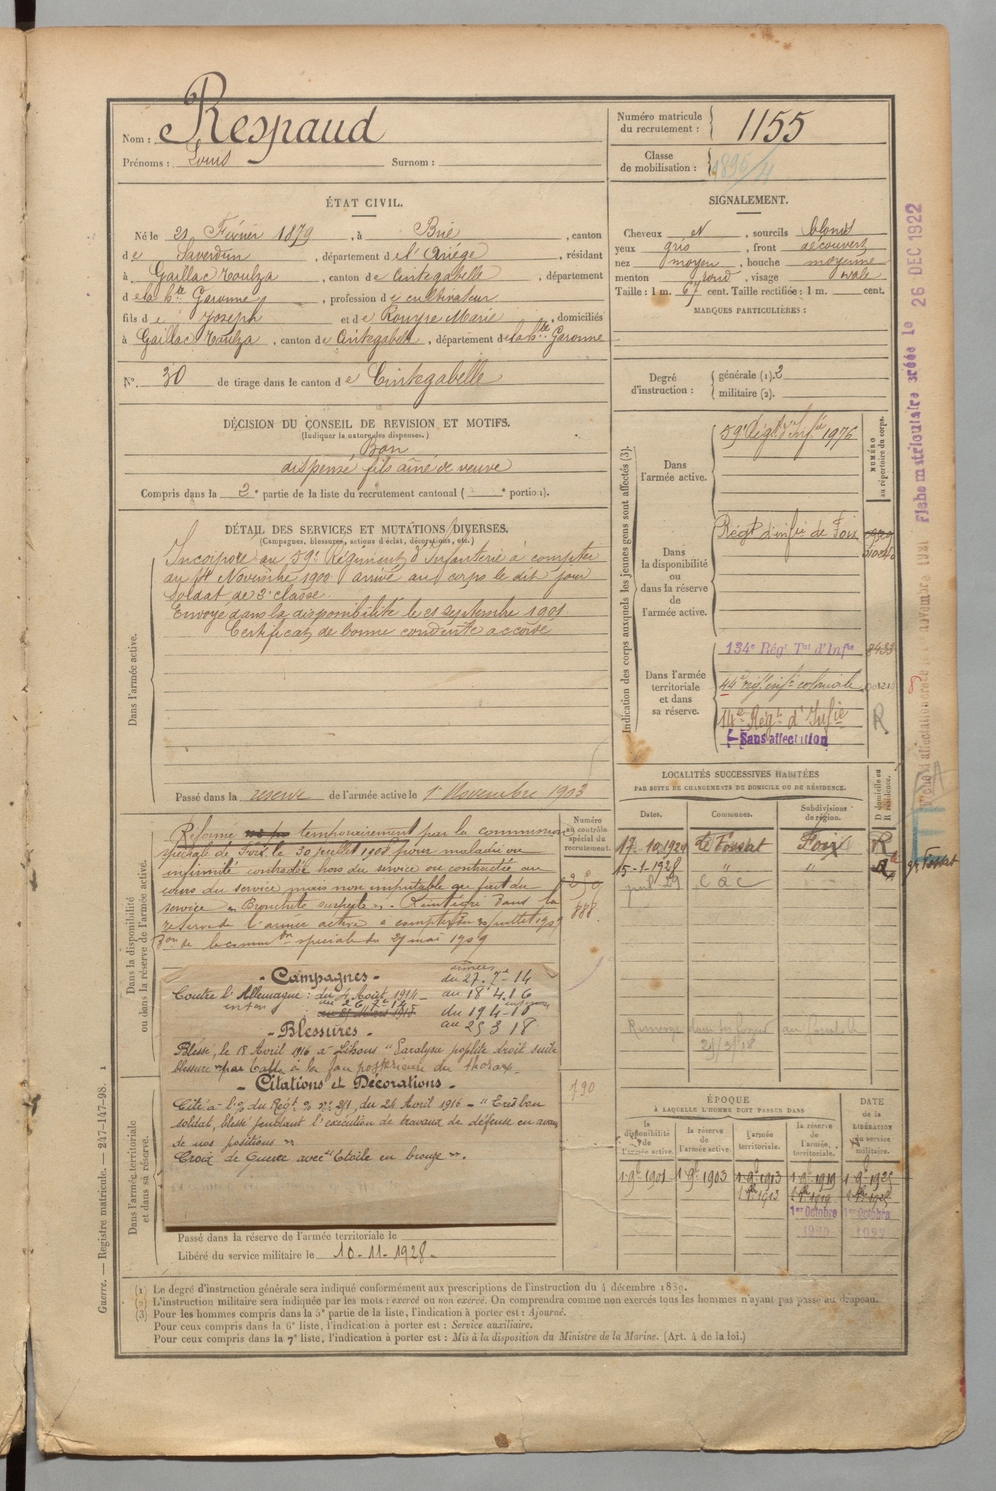 Nom : Respaud
Prénoms : Louis Surnom :
Numéro matricule du recrutement : 1155
Classe de mobilisation : 1896/4
ÉTAT CIVIL.
Né le 21 Février 1879, à Brie, canton
de Saverdun, département de l'Ariége, résidant
à Gaillac Toulza, canton de Cintegabelle, département
de la Hte Garonne, profession de cultivateur
fils de Joseph et de Rouyre Marie, domiciliés
à Gaillac Toulza, canton de Cintegabelle, département de la Hte Garonne
N° 30 de tirage dans le canton de Cintegabelle
DÉCISION DU CONSEIL DE REVISION ET MOTIFS.
(Indiquer la nature des dispenses.)
Bon
dispensé fils aîné de veuve
Compris dans la 2e partie de la liste du recrutement cantonal ( e portion).
SIGNALEMENT.
Cheveux N, sourcils blonds
yeux gris, front découvert
nez moyen, bouche moyenne
menton rond, visage ovale
Taille : 1 m. 67 cent. Taille rectifiée : 1 m. cent.
MARQUES PARTICULIÈRES :
Degré d'instruction : générale (1). 2
militaire (2).
DÉTAIL DES SERVICES ET MUTATIONS DIVERSES.
(Campagnes, blessures, actions d'éclat, décorations, etc.)
Dans l'armée active.
Incorporé au 59e Régiment d'Infanterie à compter
au Novembre 1900 arrivé au corps le dit jour
soldat de 2e classe.
Envoyé dans la disponibilité le 21 septembre 1901
Certificat de bonne conduite accordé
Passé dans la reserve de l'armée active le 1er Novembre 1903
Indication des corps auxquels les jeunes gens sont affectés (3).
NUMÉRO au répertoire du corps.
Dans l'armée active.
59e Régt d'Infie 1976
Dans la disponibilité ou dans la réserve de l'armée active.
Régt d'infie de Foix
Dans l'armée territoriale et dans sa réserve.
134e Régt Tal d'Infie
44e régt infie coloniale
14e Régt d'Infie R
Sans affectation
Fiche matriculaire créée le 26 DEC 1922
Dans la disponibilité ou dans la réserve de l'armée active.
Numéro au contrôle spécial du recrutement.
Réformé temporairement par la commission
spéciale de Foix le 30 juillet 1908 pour maladie ou
infirmité contractée hors du service ou contractée au
cours du service mais non imputable au fait du
service "Bronchite suspecte". Réintégré dans la
réserve de l'armée active à compter du juillet 1909
de la common spéciale du 27 mai 1909
888
790
- Campagnes -
Contre l'Allemagne : du 4 Août 1914
armées
du 27.7e 14
au 18 4 16
du 19 4 16
au 25 3 18
- Blessures -
Blessé, le 18 Avril 1916 à Lihons "Paralysie poplité droit suite
blessure par balle à la face postérieure du thorax
- Citations et Décorations -
Cité à l'o/ du Régt % n° 271, du 26 Avril 1916 - "Très bon
soldat, blessé pendant l'exécution de travaux de défense en avant
de nos positions"
Croix de Guerre avec Etoile en bronze
Dans l'armée territoriale et dans sa réserve.
Passé dans la réserve de l'armée territoriale le
Libéré du service militaire le 10-11-1928
LOCALITÉS SUCCESSIVES HABITÉES
PAR SUITE DE CHANGEMENTS DE DOMICILE OU DE RÉSIDENCE.
Dates. Communes. Subdivisions de région. D domicile ou R résidence.
17.10.1924 Le Fossat Foix R
15-1-1928 " "
ÉPOQUE
À LAQUELLE L'HOMME DOIT PASSER DANS
la disponibilité de l'armée active.
la réserve de l'armée active.
l'armée territoriale.
la réserve de l'armée territoriale.
DATE de la LIBÉRATION du service militaire.
1 9e 1901 1 9e 1903 1 9e 1913 1 9e 1919 1 9e 1925
1er Octobre 1er Octobre
Guerre. — Registre matricule. — 247-147-98. 1
(1) Le degré d'instruction générale sera indiqué conformément aux prescriptions de l'instruction du 4 décembre 1889.
(2) L'instruction militaire sera indiquée par les mots : exercé ou non exercé. On comprendra comme non exercés tous les hommes n'ayant pas passé au drapeau.
(3) Pour les hommes compris dans la 5e partie de la liste, l'indication à porter est : Ajourné.
Pour ceux compris dans la 6e liste, l'indication à porter est : Service auxiliaire.
Pour ceux compris dans la 7e liste, l'indication à porter est : Mis à la disposition du Ministre de la Marine. (Art. 4 de la loi.)